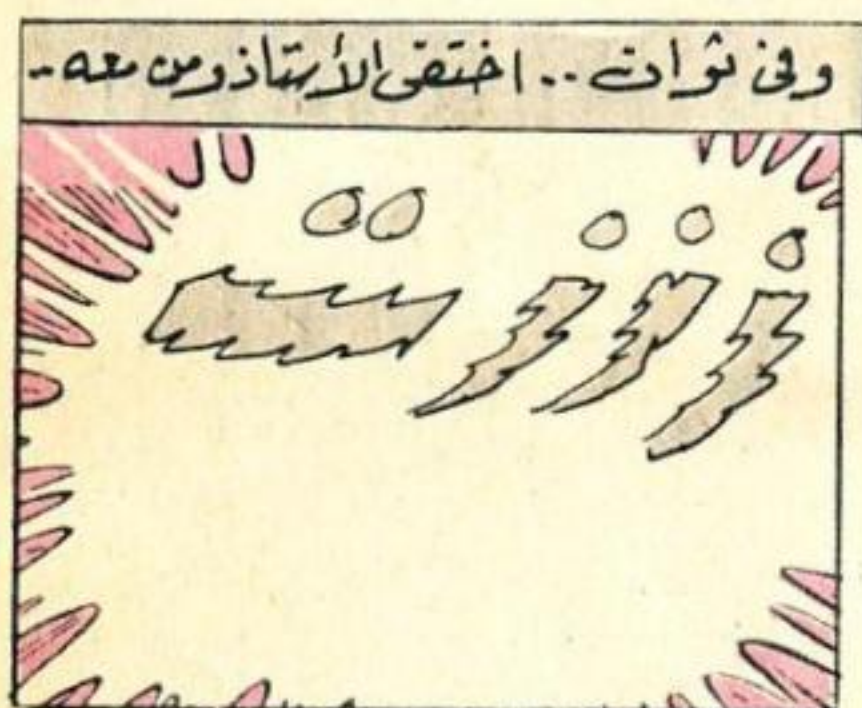 وفى ثوان .. اختفى الأستاذ ومن معه ..
ززززت